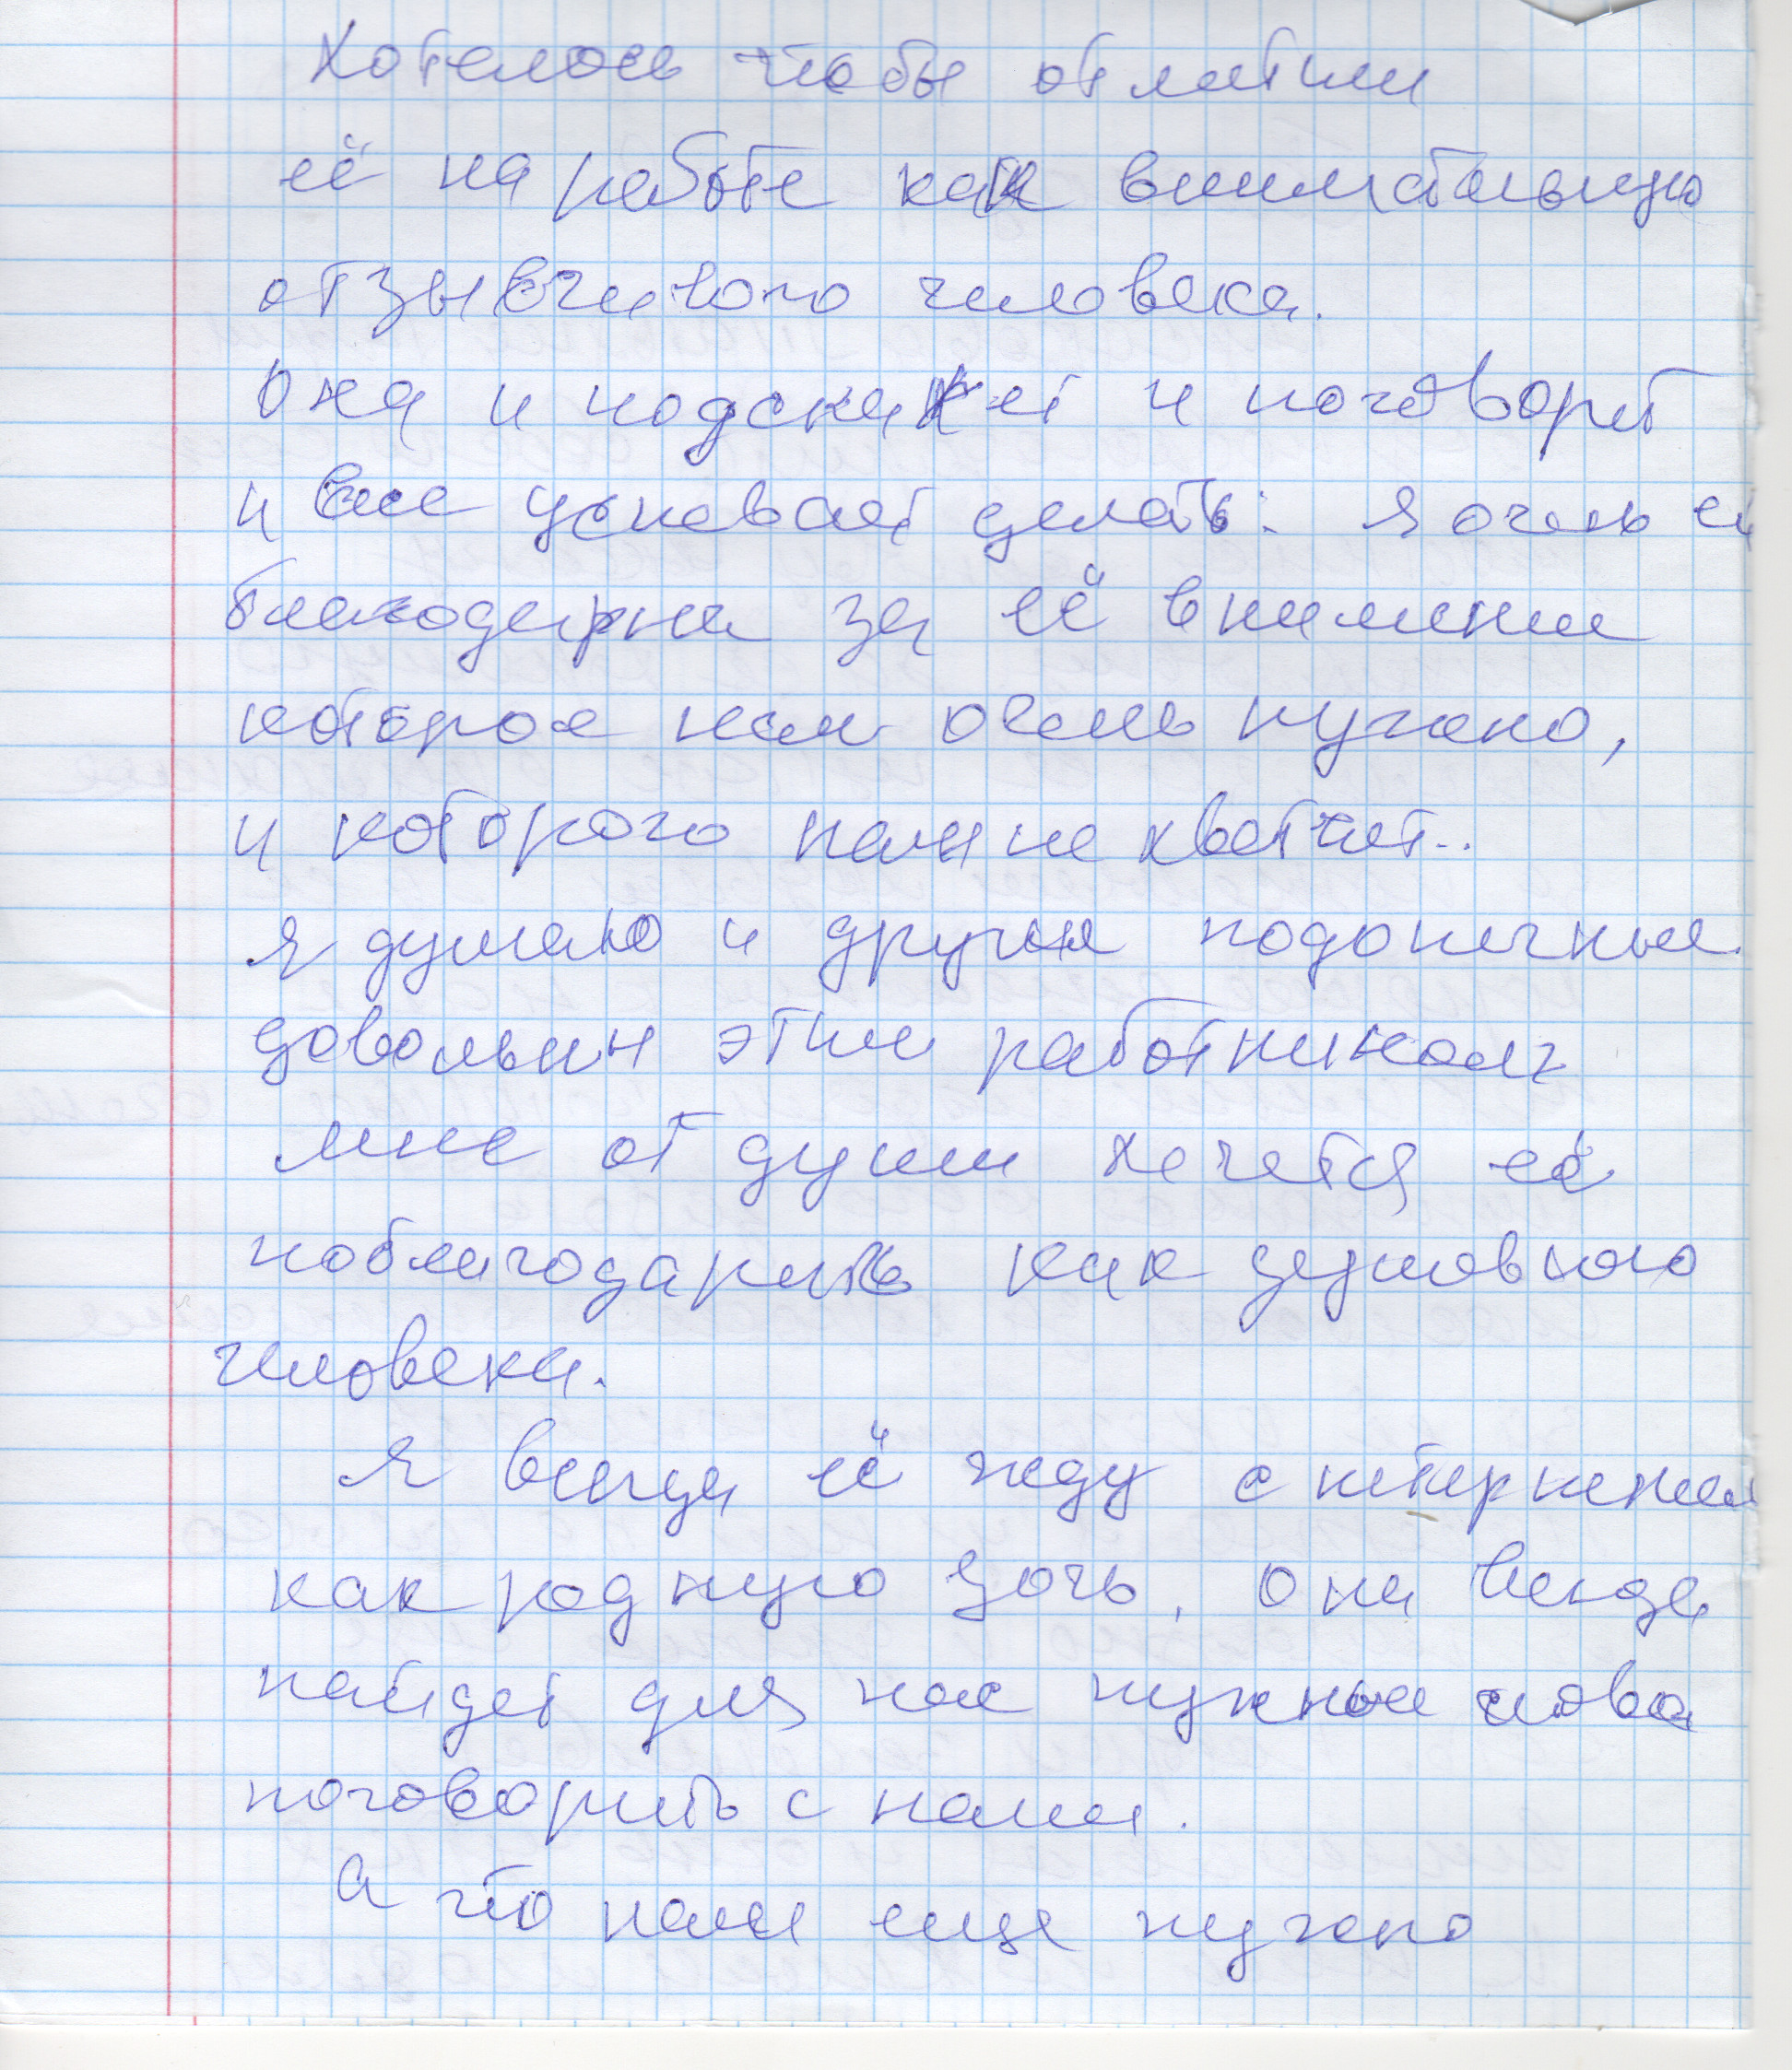 Хотелось чтобы отметили
её на работе как внимательную
отзывчивого человека.
Она и подскажет и поговорит
и все успевает делать: я очень ей
благодарна за её внимание
которое нам очень нужно,
и которого нам не хватает..
я думаю и другие подопечные
довольны этим работником
мне от души хочется её
поблагодарить как душевного
человека.
Я всегда её жду с нетерпением
как родную дочь, она всегда
найдет для нас нужные слова
поговорить с нами.
А что нам еще нужно